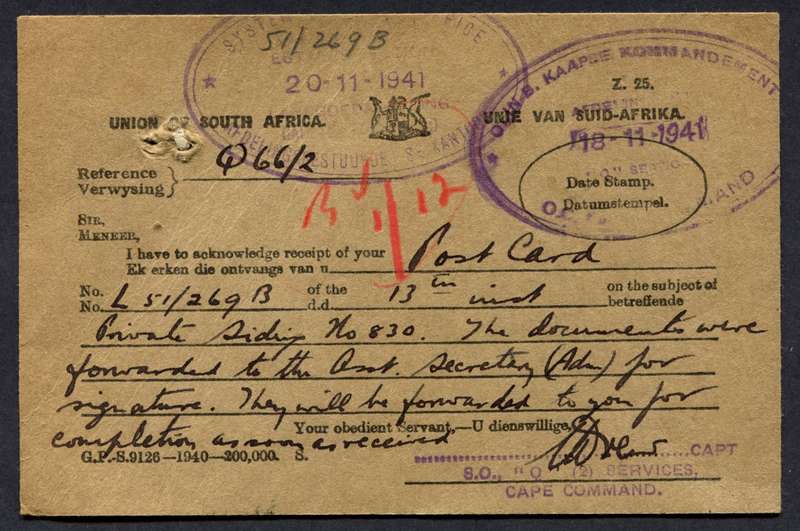 51/269B
20-11-1941
KAAPSE KOMMANDEMENT
Z. 25.
18-11-1941
UNION OF SOUTH AFRICA.
UNIE VAN SUID-AFRIKA.
Reference
Verwysing
Q 66/2
Date Stamp.
Datumstempel.
1/12
SIR,
MENEER,
I have to acknowledge receipt of your
Ek erken die ontvangs van u
Post Card
No. L 51/269B of the 13th inst on the subject of
No. d.d. betreffende
Private Siding No 830. The documents were
forwarded to the Asst. Secretary (Adm) for
signature. They will be forwarded to you for
Your obedient Servant,—U dienswillige,
completion as soon as received
G.P.-S.9126—1940—200,000. S.
CAPT
S.O., "Q" (2) SERVICES,
CAPE COMMAND.